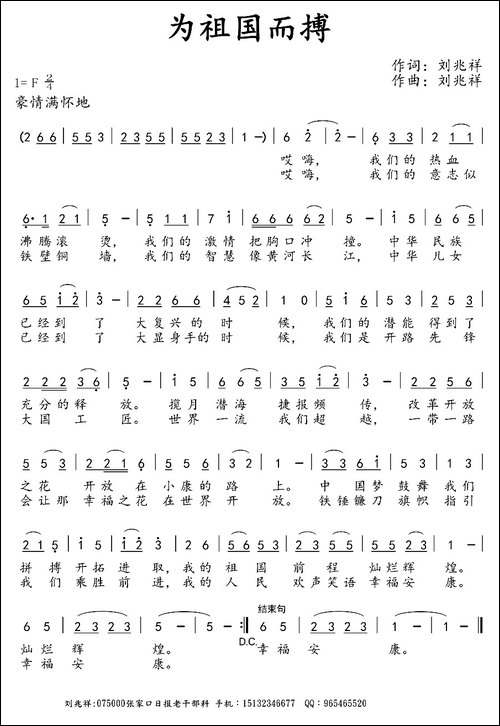 为祖国而搏
作词：刘兆祥
作曲：刘兆祥
1=F 2/4
豪情满怀地
(2 6 6 | 5 5 3 | 2 3 5 5 | 5 2 3 5 | 1 –) | 6 2 | 2 – | 6 3 3 | 2 1 1 |
哎嗨， 我们的 热血
哎嗨， 我们的 意志似
6· 1 2 1 | 5 – | 5 1 1 | 7 i | 6 6 6 6 2 | 5 – | 3 5 | 6 6 5 |
沸腾滚 烫， 我们的 激情 把胸口冲 撞。 中华 民族
铁壁铜 墙， 我们的 智慧 像黄河长 江， 中华 儿女
6 5 i 2 | 3 – | 2 3 2 1 | 2 2 6 | 4 5 2 | 1 0 | 5 i 5 | 6 5 | 1 2 3 |
已经到 了 大复兴的时 候， 我们的 潜能 得到了
已经到 了 大显身手的时 候， 我们是 开路 先锋
2 2 2 3 6 | 5 – | i 5 | 1 5 | 6 6 5 | 3 5 i 2 | 3 – | 2 2 5 6 |
充分的释 放。 揽月 潜海 捷报频 传， 改革开放
大国 工 匠。 世界 一流 我们超 越， 一带一路
5 5 3 | 2 2 1 6 | 5 5 2 3 | 2 1 2 | 3 – | 3 3 6 i | 5 3 | 2 2 3 |
之花 开放 在 小康的 路 上。 中 国梦 鼓舞 我们
会让那 幸福之花 在世界 开 放。 铁锤镰刀 旗帜 指引
2 1 5 | i 5 | i 2 | 3 1 2 | 6 5 | 5 6 5 3 | 2 3 5 3 | 2 3 2 | 1 – |
拼搏 开拓 进取，我的 祖国 前程 灿烂辉 煌。
我们 乘胜 前进，我的 人民 欢声笑语 幸福安 康。
6 5 | 2 3 2 3 | 5 – | 5 – :‖ 6 5 | 2 3 2 3 | i – | i – ‖
结束句
D.C.
灿烂 辉 煌。 幸福 安 康。
幸福 安 康。
刘兆祥:075000张家口日报老干部科 手机：15132346677 QQ：965465520